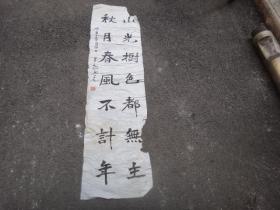 山光樹色都無主
秋月春風不計年